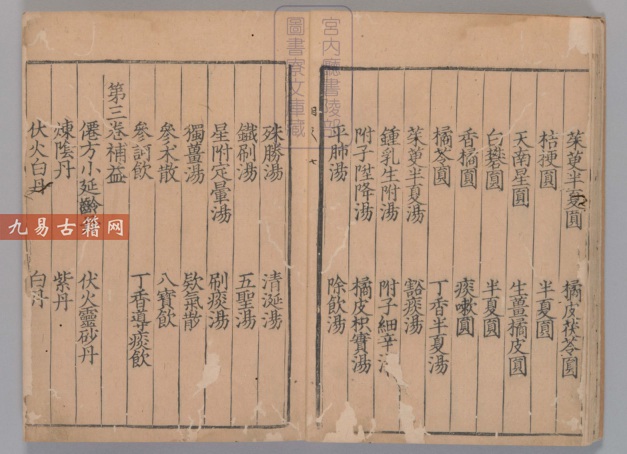 茱萸半夏圓　橘皮茯苓圓
桔梗圓　半夏圓
天南星圓　生薑橘皮圓
白礬圓　半夏圓
香橘圓　痰嗽圓
橘苓圓　丁香半夏湯
茱萸半夏湯　豁痰湯
鍾乳生附湯　附子細辛
附子陞降湯　橘皮枳實湯
平肺湯　除飲湯
殊勝湯　清涎湯
鐵刷湯　五聖湯
星附定暈湯　刷痰湯
獨薑湯　欬氣散
參朮散　八寶飲
參訶飲　丁香導痰飲
第三卷補益
僊方小延齡　伏火靈砂丹
煉陰丹　紫丹
伏火白丹　白丹
宮內廳書陵部
圖書寮文庫藏
九易古籍网